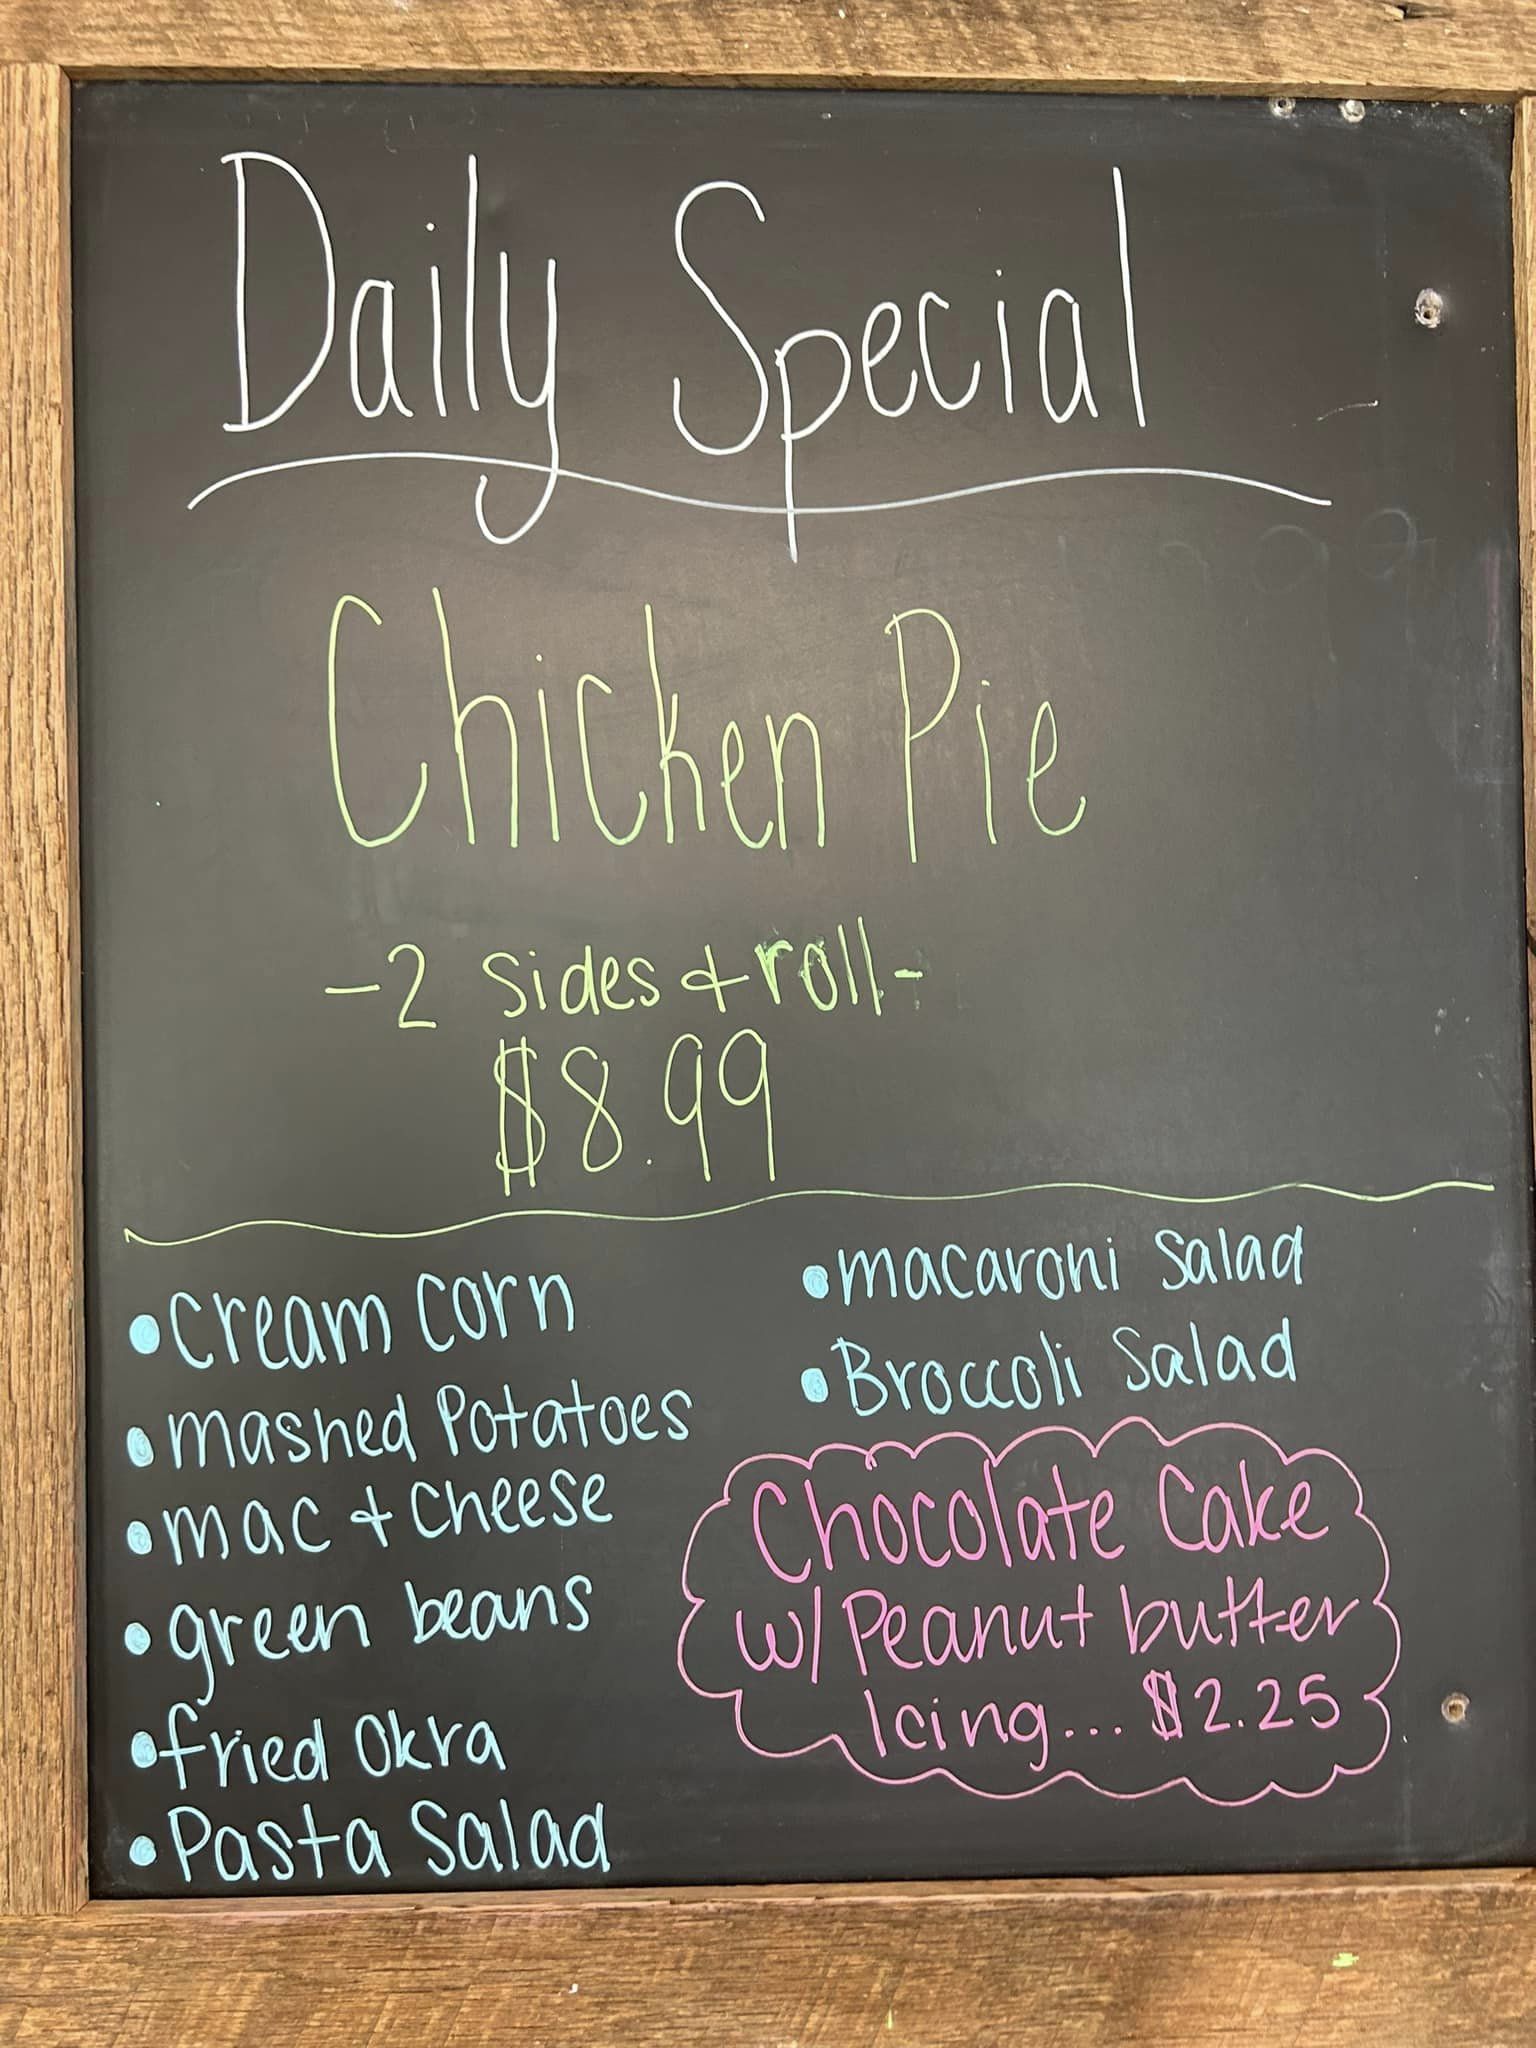 Daily Special
Chicken Pie
-2 Sides + roll-
$8.99
• Cream Corn
• mashed Potatoes
• mac + cheese
• green beans
• fried Okra
• Pasta Salad
• macaroni Salad
• Broccoli Salad
Chocolate Cake
w/ Peanut butter
Icing... $2.25